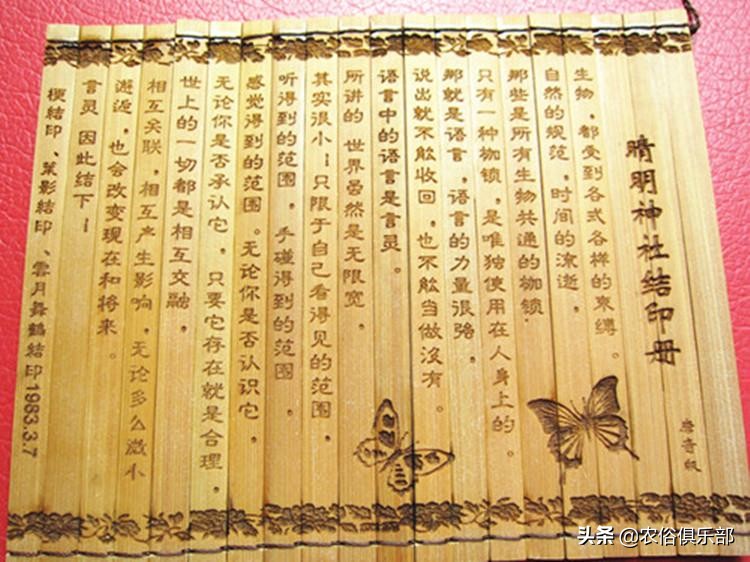 晴明神社结印册
生物，都受到各式各样的束缚。
自然的规范，时间的流逝，
那些是所有生物共通的枷锁.
只有一种枷锁，是唯独使用在人身上的。
那就是语言，语言的力量很强，
说出就不能收回，也不能当做没有。
语言中的语言是言灵。
所讲的 世界虽然是无限宽，
其实很小—只限于自己看得见的范围，
听得到的范围，手碰得到的范围，
感觉得到的范围。无论你是否认识它，
无论你是否承认它，只要它存在就是合理，
世上的一切都是相互交融，
相互关联，相互产生影响，无论多么微小
邂逅，也会改变现在和将来。
言灵 因此结下—
梗结印、葉影结印、雲月舞鶴结印1983.3.7
头条 @农俗俱乐部